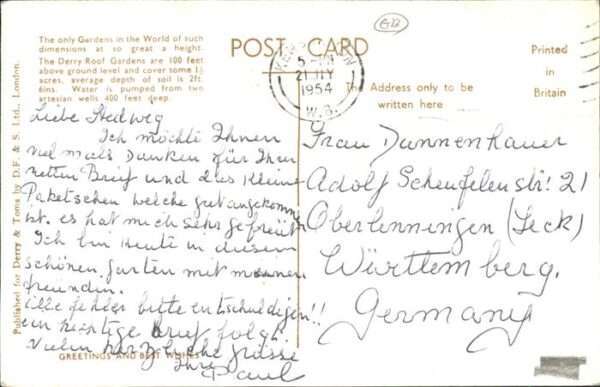 The only Gardens in the World of such
dimensions at so great a height.
The Derry Roof Gardens are 100 feet
above ground level and cover some 1½
acres, average depth of soil is 2ft.
6ins. Water is pumped from two
artesian wells 400 feet deep.
Liebe Hedweg
Ich möchte Ihnen
viel mals Danken für Ihren
netten Brief und das Kleine
Paketschen welche gut angekommen
ist. es hat mich sehr gefreut
Ich bin Heute in diesem
schönen garten mit meinen
freundin.
alle fehler bitte entschuldigen!!
ein brief folgt
Vielen herzliche grüsse
Ihre Paul
GREETINGS AND BEST WISHES
Published for Derry & Toms by D.F. & S. Ltd., London.
POST CARD
G12
5-
21 JLY
1954
W.8.
The Address only to be
written here
Printed
in
Britain
Frau Dannenhauer
Adolf Scheufelen str! 21
Oberlenningen (Teck)
Württemberg.
Germany